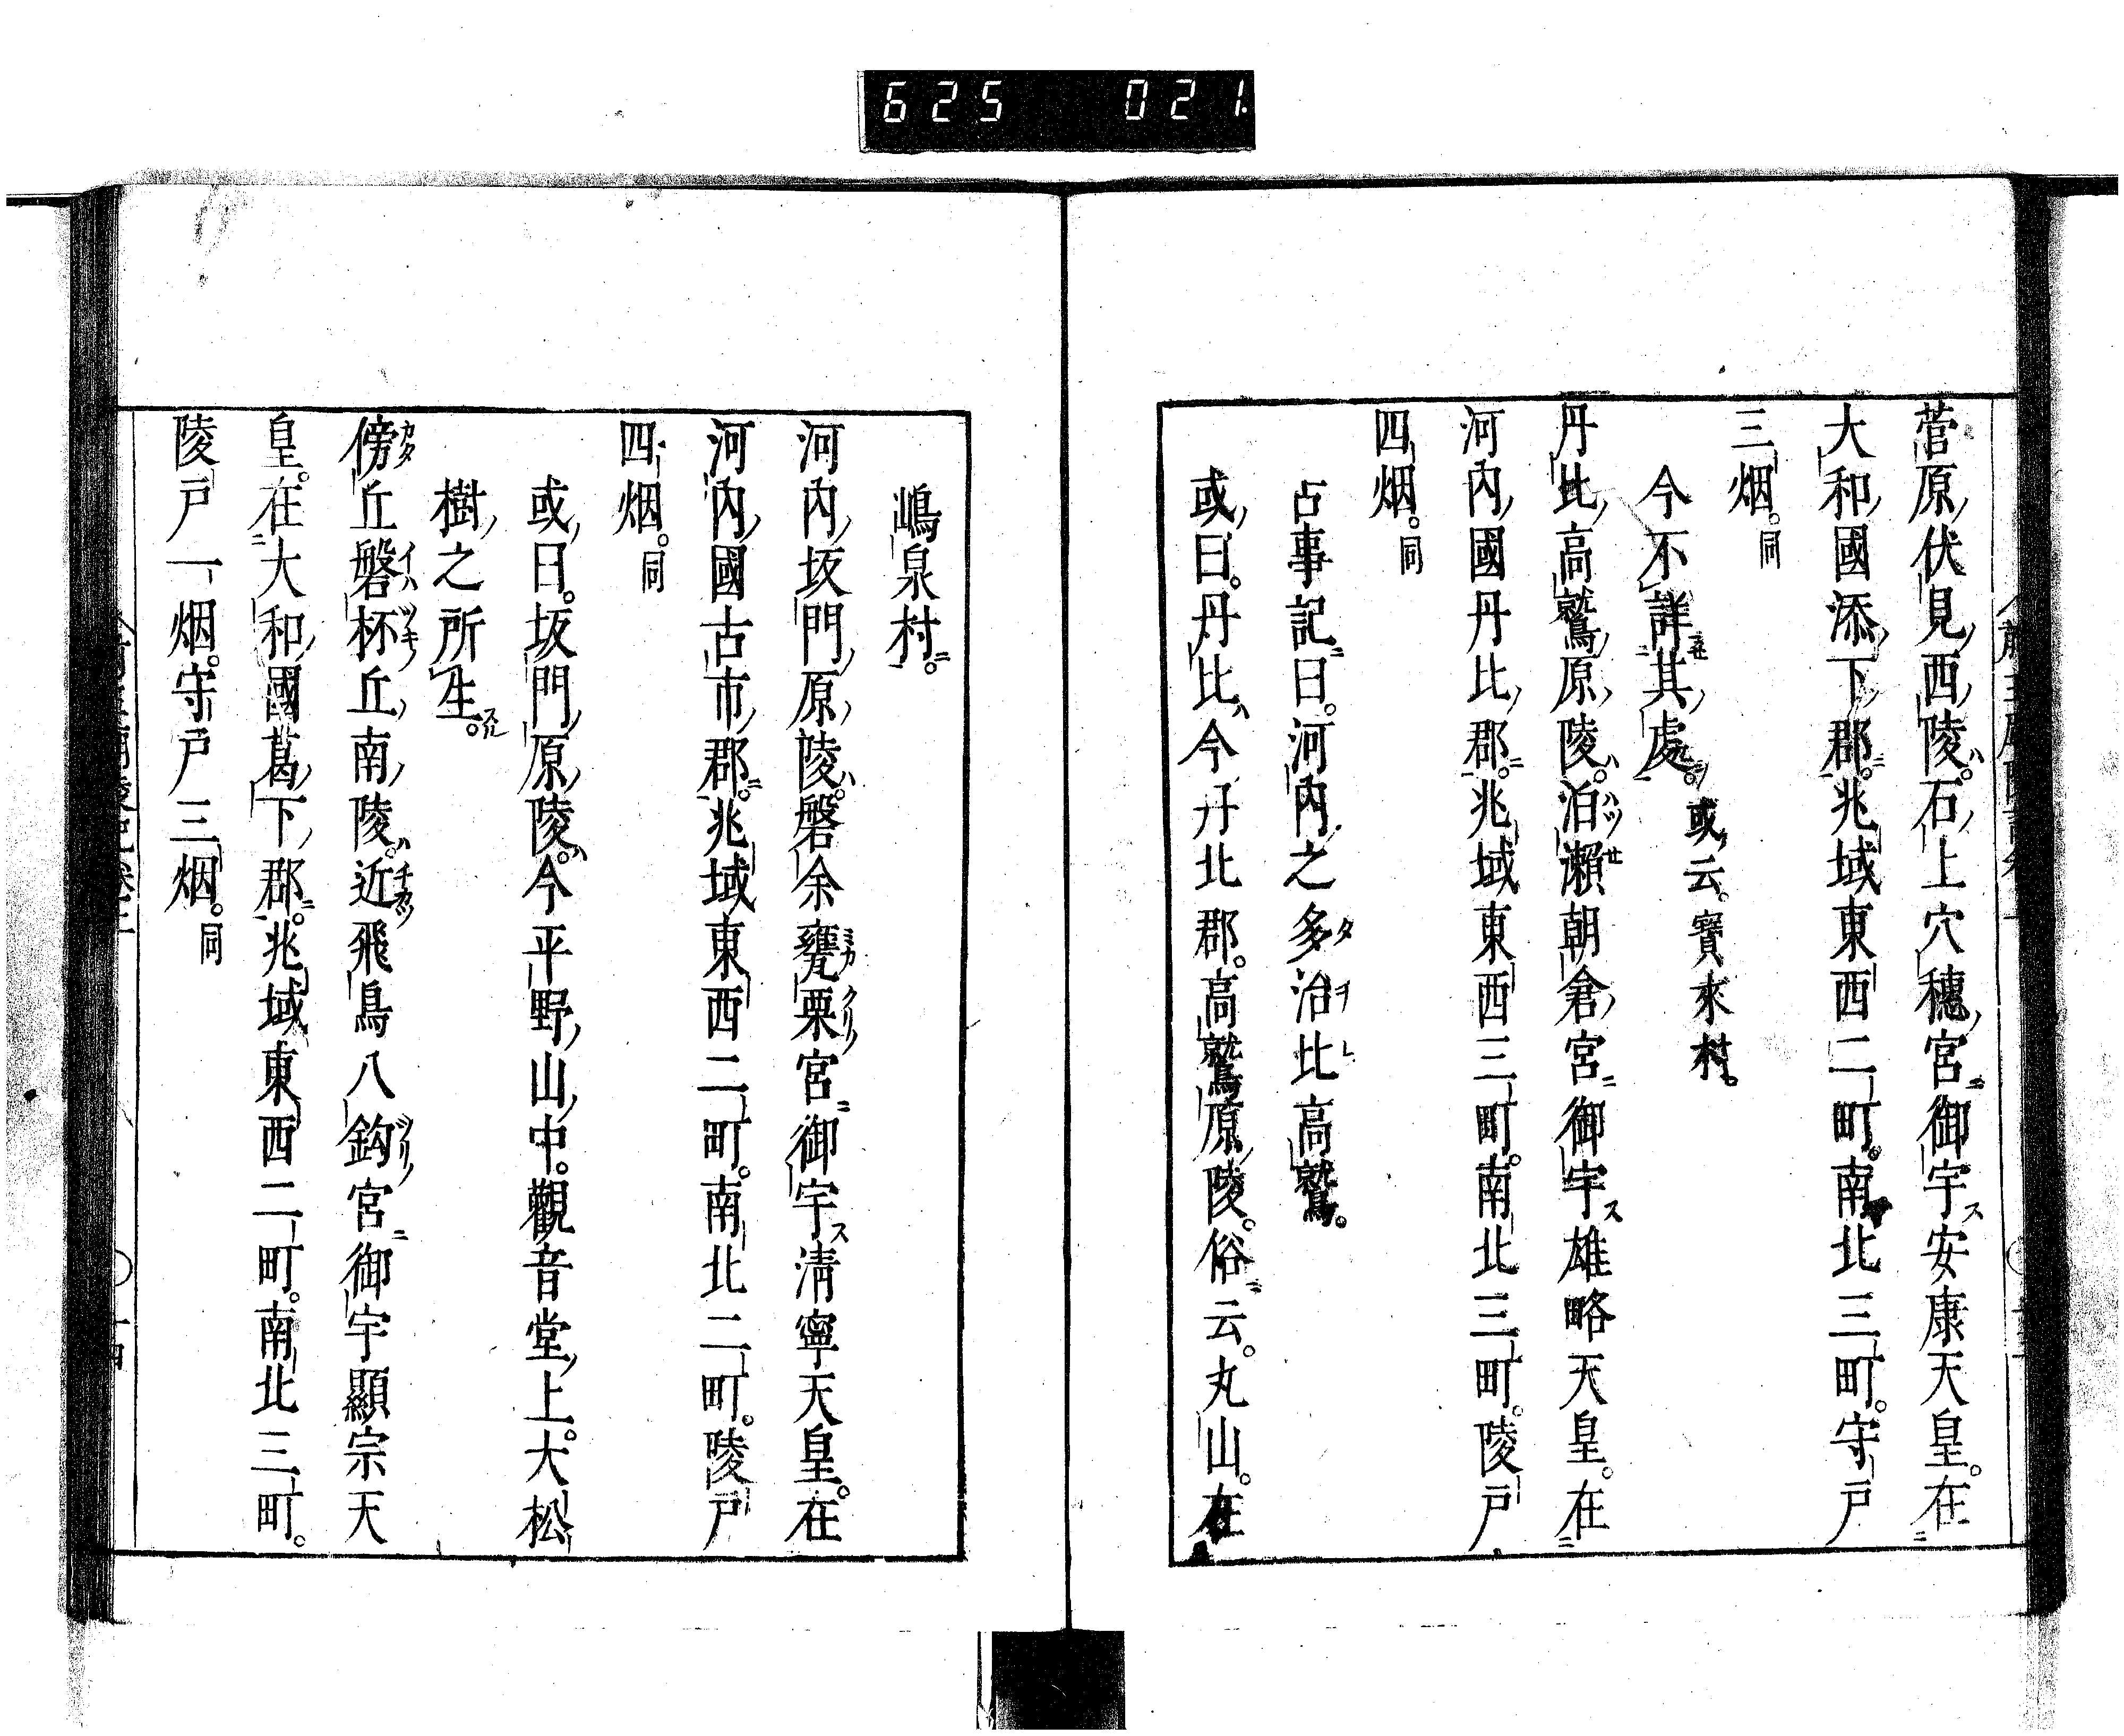 625 021
菅原伏見西陵。石上穴穗宮御宇安康天皇。在
大和國添下郡。兆域東西二町。南北三町。守戸
三烟。同
今不詳其處。或云。寶來村。
丹比高鷲原陵。泊瀨朝倉宮御宇雄略天皇。在
河內國丹比郡。兆域東西三町。南北三町。陵戸
四烟。同
古事記曰。河內之多治比高鷲。
或曰。丹比今丹北郡。高鷲原陵。俗云。丸山。在
嶋泉村。
河內坂門原陵。磐余甕栗宮御宇清寧天皇。在
河內國古市郡。兆域東西二町。南北二町。陵戸
四烟。同
或曰。坂門原陵。今平野山中。觀音堂上。大松
樹之所生。
傍丘磐杯丘南陵。近飛鳥八鈎宮御宇顯宗天
皇。在大和國葛下郡。兆域東西二町。南北三町。
陵戸一烟。守戸三烟。同